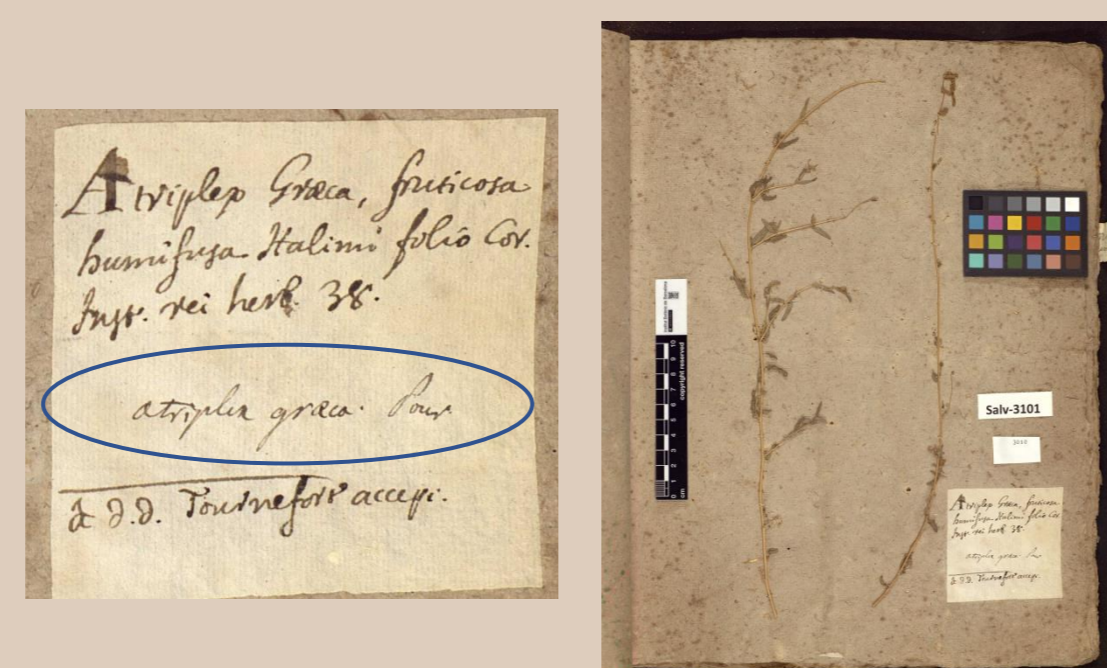 Atriplex Græca, fruticosa
humifusa Halimi folio Cor.
Inst. rei herb. 38.
atriplex græca. Pour
a D.D. Tournefort accepi.
copyright reserved
0 1 2 3 4 5 6 7 8 9 10
cm
Salv-3101
Atriplex Græca, fruticosa
humifusa Halimi folio Cor
Inst. rei herb 38.
atriplex græca Pour
a D.D. Tournefort accepi.